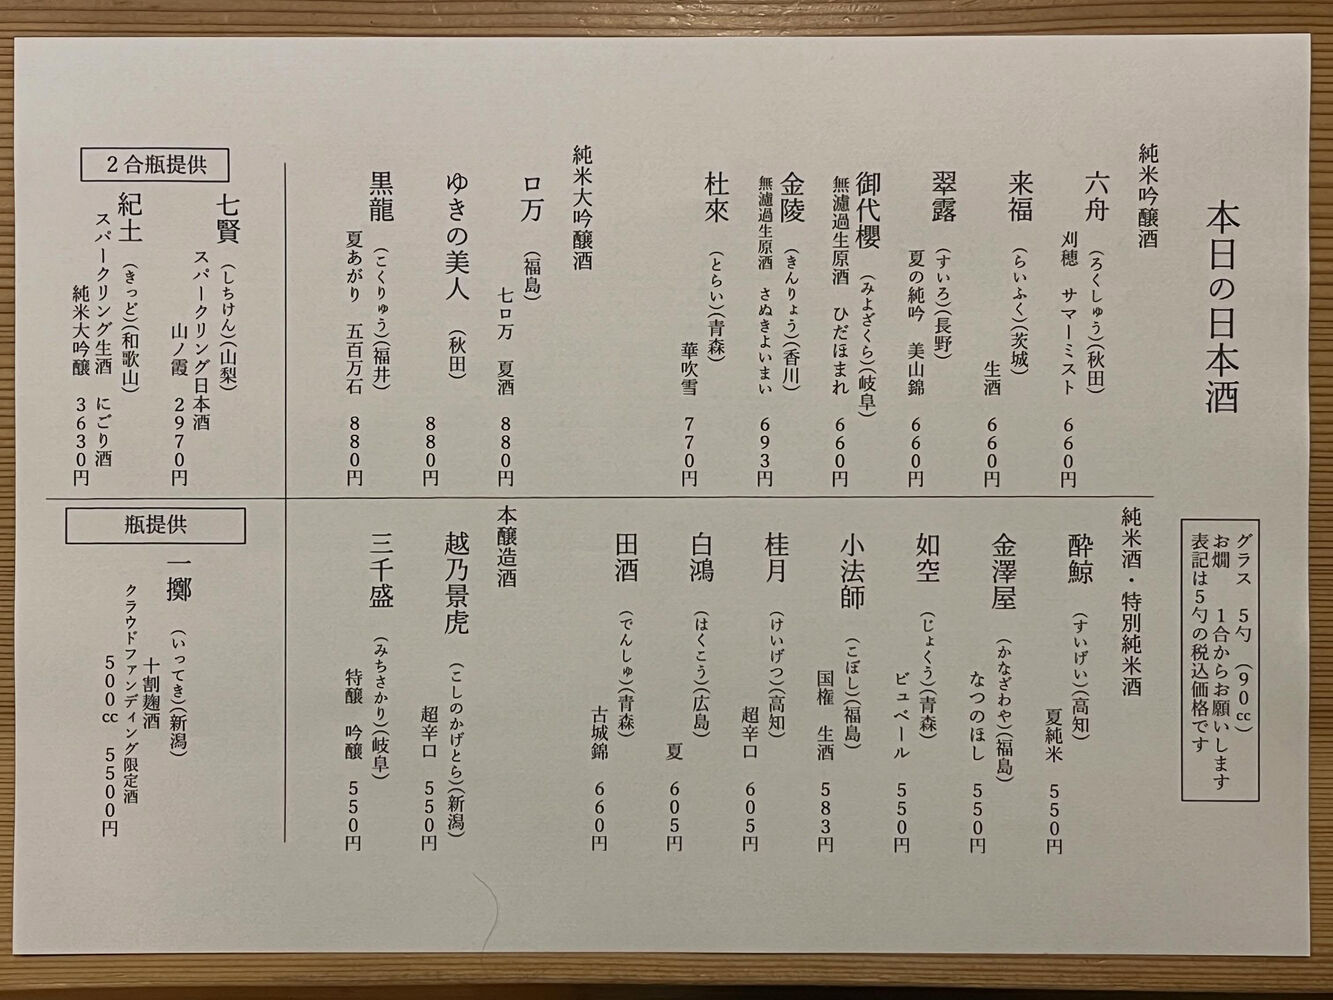 本日の日本酒
グラス　5勺　(90㏄)
お燗　1合からお願いします
表記は5勺の税込価格です
純米吟醸酒
六舟　(ろくしゅう)(秋田)
刈穂　サマーミスト　660円
来福　(らいふく)(茨城)
生酒　660円
翠露　(すいろ)(長野)
夏の純吟　美山錦　660円
御代櫻　(みよざくら)(岐阜)
無濾過生原酒　ひだほまれ　660円
金陵　(きんりょう)(香川)
無濾過生原酒　さぬきよいまい　693円
杜來　(とらい)(青森)
華吹雪　770円
純米大吟醸酒
ロ万　(福島)
七ロ万　夏酒　880円
ゆきの美人　(秋田)
880円
黒龍　(こくりゅう)(福井)
夏あがり　五百万石　880円
純米酒・特別純米酒
酔鯨　(すいげい)(高知)
夏純米　550円
金澤屋　(かなざわや)(福島)
なつのほし　550円
如空　(じょくう)(青森)
ビュベール　550円
小法師　(こぼし)(福島)
国権　生酒　583円
桂月　(けいげつ)(高知)
超辛口　605円
白鴻　(はくこう)(広島)
夏　605円
田酒　(でんしゅ)(青森)
古城錦　660円
本醸造酒
越乃景虎　(こしのかげとら)(新潟)
超辛口　550円
三千盛　(みちさかり)(岐阜)
特醸　吟醸　550円
2合瓶提供
七賢　(しちけん)(山梨)
スパークリング日本酒
山ノ霞　2970円
紀土　(きっど)(和歌山)
スパークリング生酒　にごり酒
純米大吟醸　3630円
瓶提供
一擲　(いってき)(新潟)
十割麹酒
クラウドファンディング限定酒
500㏄　5500円